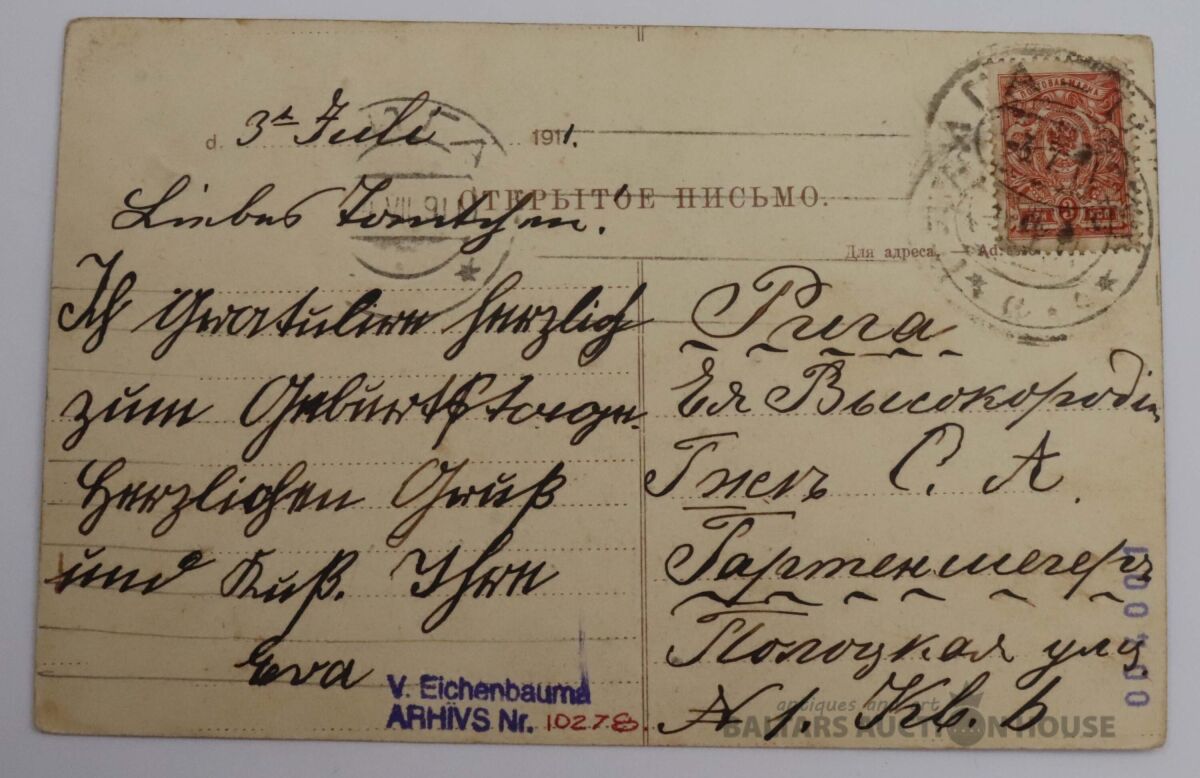 d. 3t Juli 1911.
ОТКРЫТОЕ ПИСЬМО.
Для адреса. — Ad
Liebes Tantchen!
Ich Gratulire herzlich
zum Geburtstage.
Herzlichen Gruß
und Kuß. Ihre
Eva
Рига
Ея Высокородію
Гжѣ С. А.
Полоцкая улц
N 1. Кв. 6
V. Eichenbauma
ARHĪVS Nr. 10278.
001001
antiques and art
BALTARS AUCTION HOUSE